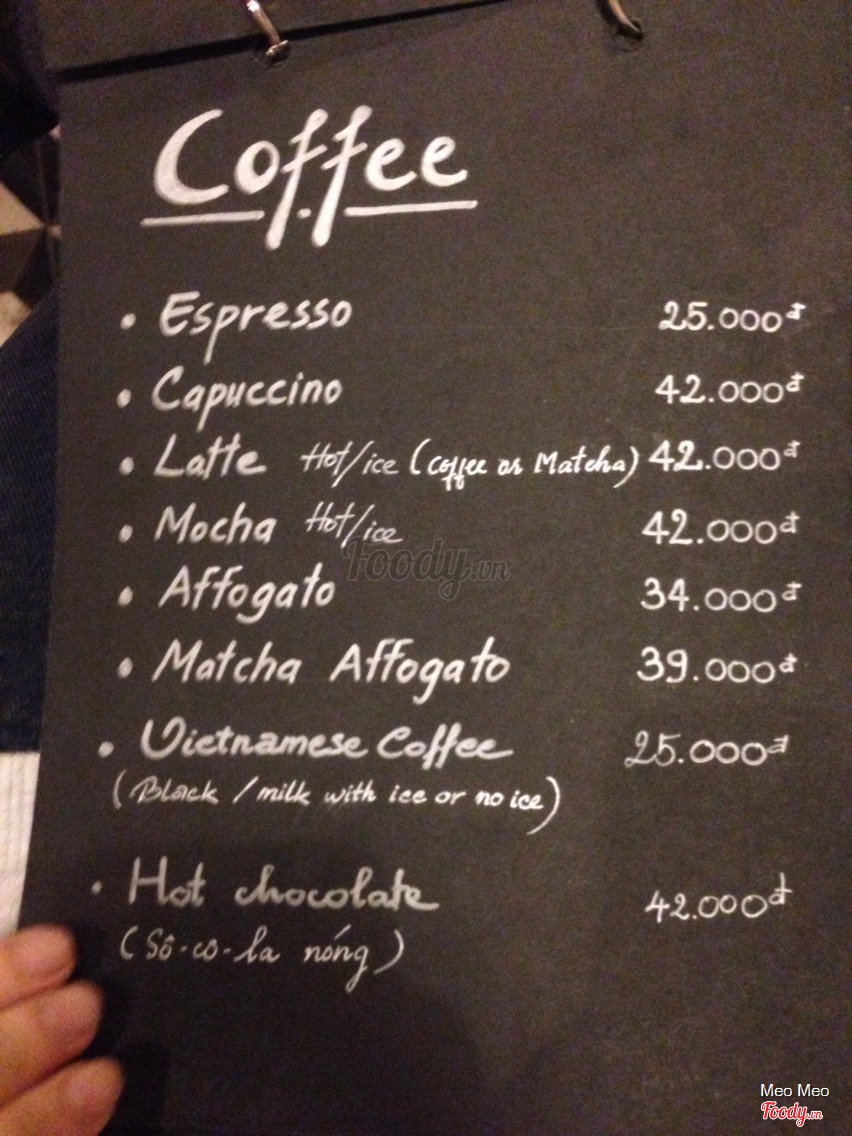 Coffee
• Espresso 25.000đ
• Capuccino 42.000đ
• Latte Hot/ice (Coffee or Matcha) 42.000đ
• Mocha Hot/ice 42.000đ
Foody.vn
• Affogato 34.000đ
• Matcha Affogato 39.000đ
• Vietnamese Coffee 25.000đ
(Black / milk with ice or no ice)
• Hot chocolate 42.000đ
(Sô-cô-la nóng)
Meo Meo
Foody.vn